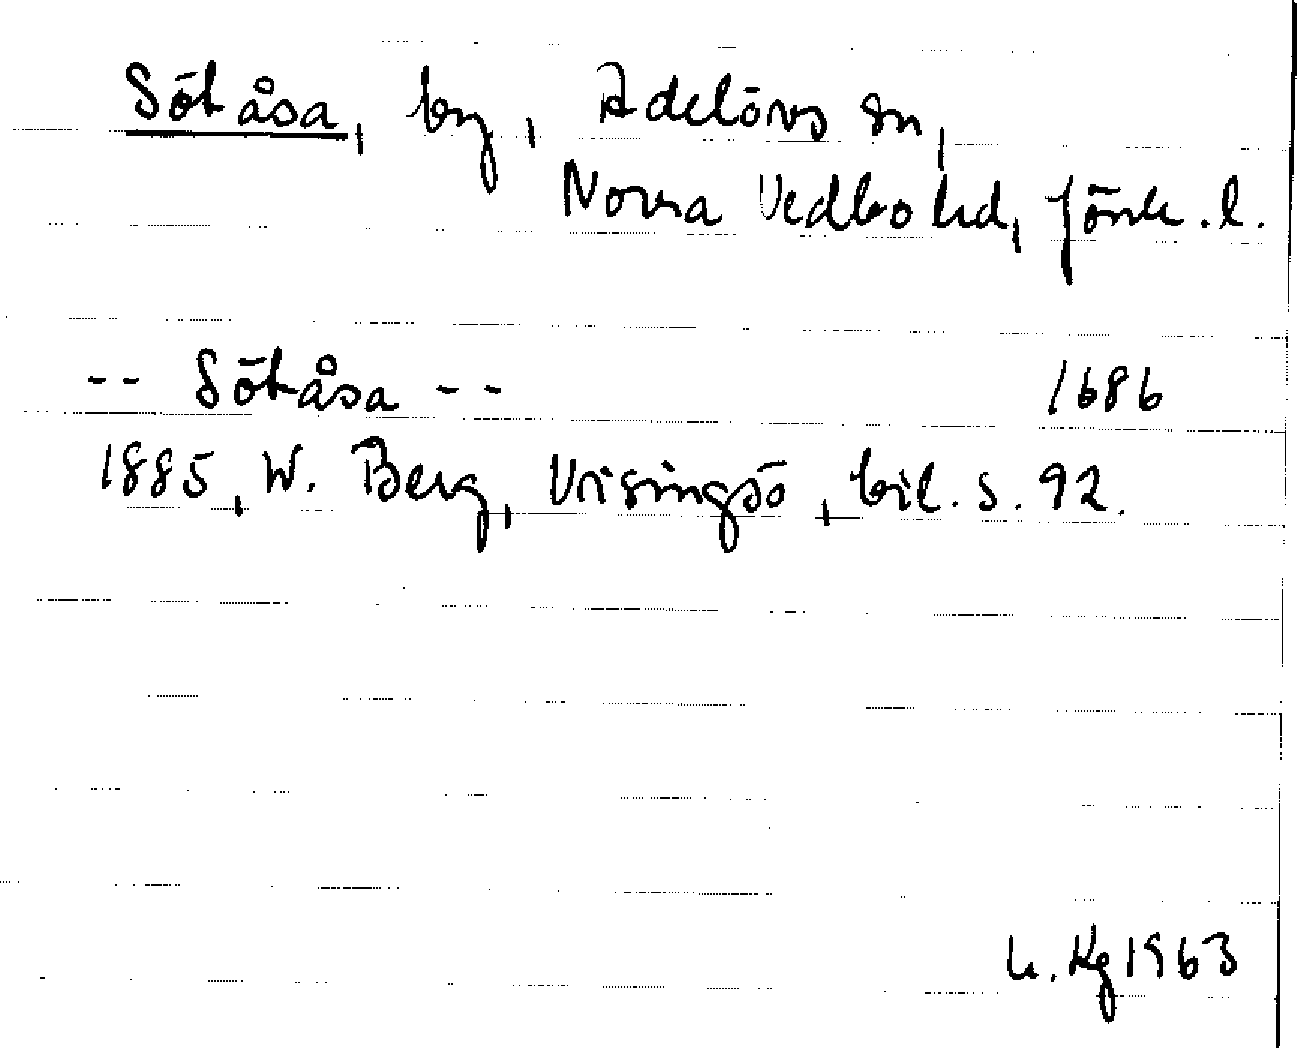 Sötåsa, by, Adelövs sn,
Norra Vedbo hd, Jönk. l.
-- Sötåsa -- 1686
1885, W. Berg, Visingsö, bil. s. 92.
h. Kg 1963